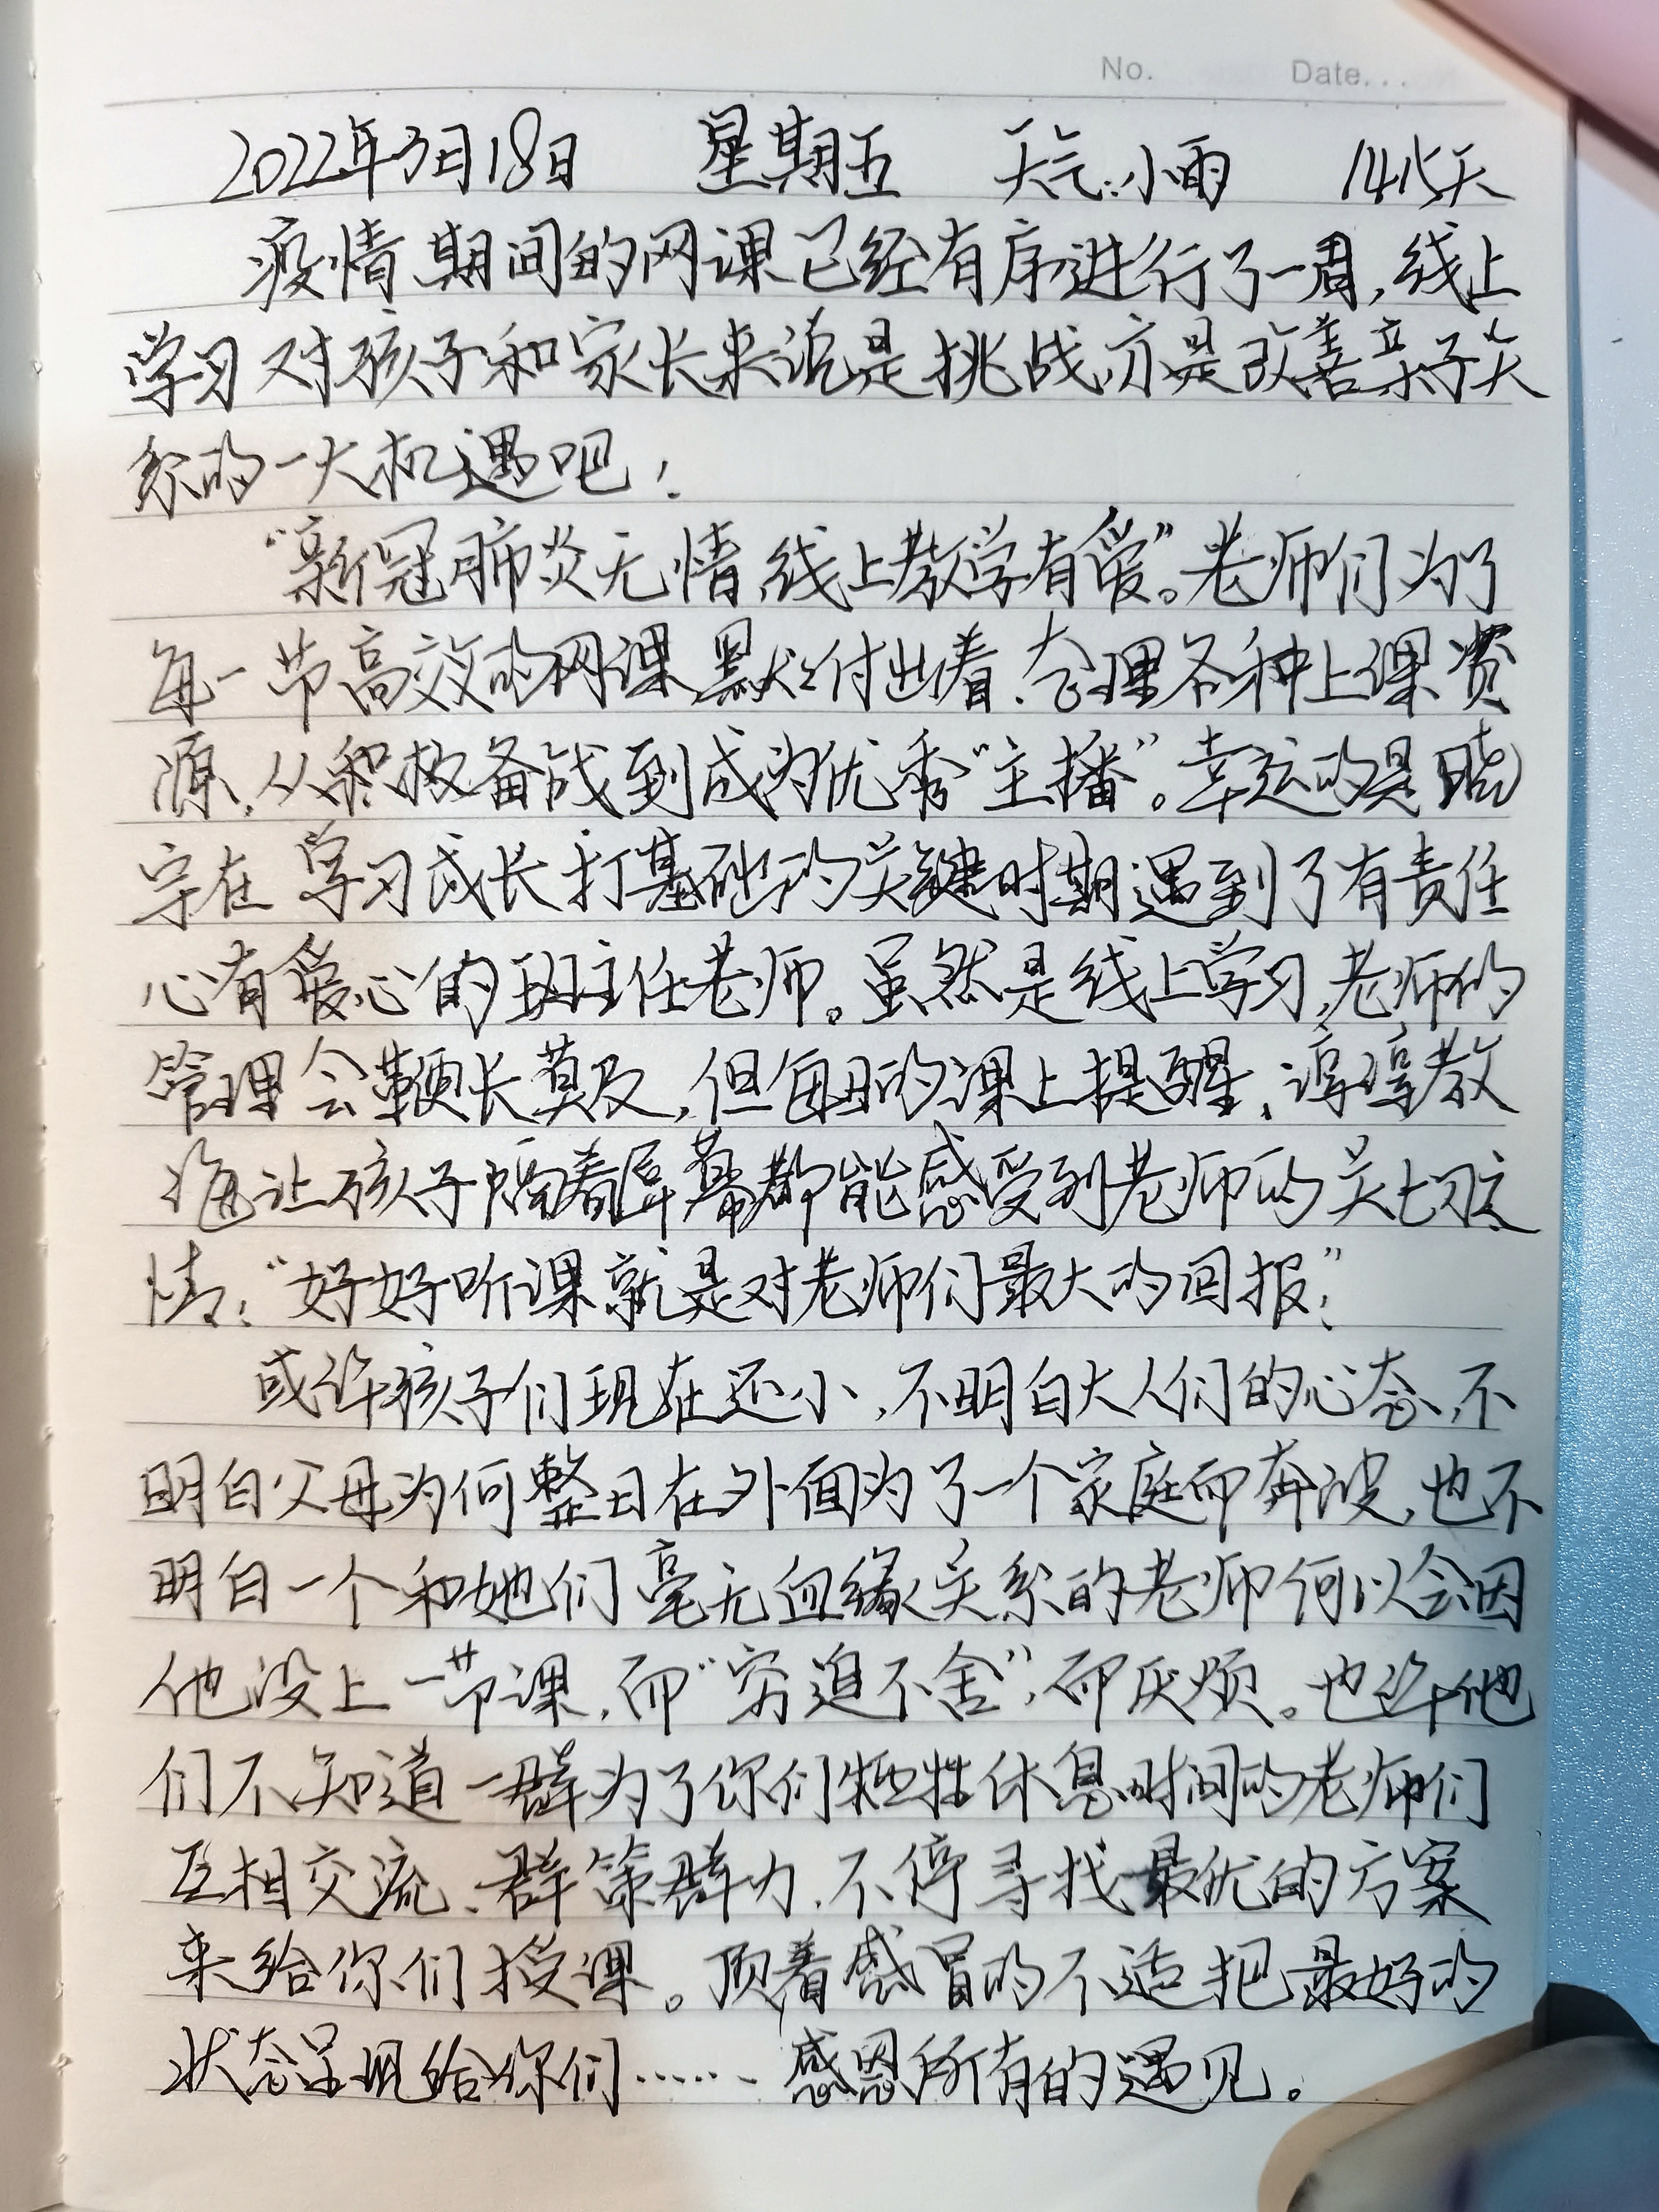 No. Date...
2022年3月18日 星期五 天气:小雨 1415天
疫情期间的网课已经有序进行了一周,线上
学习对孩子和家长来说是挑战,亦是改善亲子关
系的一大机遇吧!
“新冠肺炎无情,线上教学有爱”。老师们为了
每一节高效的网课默默付出着、合理各种上课资
源,从积极备战到成为优秀“主播”。幸运的是晓
宇在学习成长打基础的关键时期遇到了有责任
心有爱心的班主任老师。虽然是线上学习,老师的
管理会鞭长莫及,但每日的课上提醒、谆谆教
诲让孩子隔着屏幕都能感受到老师的关切之
情:“好好听课就是对老师们最大的回报”!
或许孩子们现在还小,不明白大人们的心态,不
明白父母为何整日在外面为了一个家庭而奔波,也不
明白一个和她们毫无血缘关系的老师何以会因
他没上一节课,而“穷追不舍”,而厌烦。也许他
们不知道一群为了你们牺牲休息时间的老师们
互相交流、群策群力,不停寻找最优的方案
来给你们授课。顶着感冒的不适把最好的
状态呈现给你们……感恩所有的遇见。